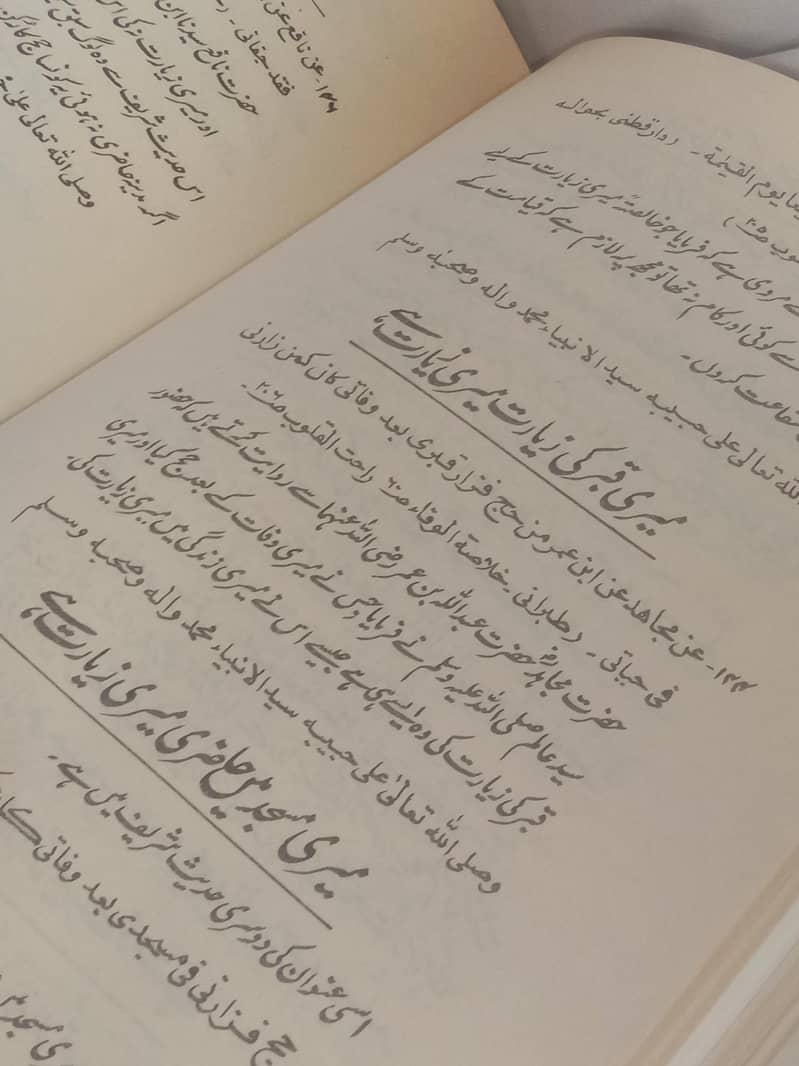 یوم القیٰمۃ ۔ (دارقطنی بحوالہ
مروی ہے کہ فرمایا جو خالصۃً میری زیارت کے لیے
سے کوئی اور کام نہ تھا تو مجھ پر لازم ہے کہ قیامت کے
شفاعت کروں ۔
اللہ تعالٰی علی حبیبہ سید الانبیاء محمد واٰلہ وصحبہٖ وسلم
میری قبر کی زیارت میری زیارت ہے
عن مجاھد عن ابن عمر من حج فزار قبری بعد وفاتی کان کمن زارنی
فی حیاتی ۔ (طبرانی ۔ خلاصۃ الوفاء راحت القلوب
حضرت مجاہد حضرت عبداللہ بن عمر رضی اللہ عنہما سے روایت کرتے ہیں کہ حضور
سید عالم صلی اللہ علیہ وسلم نے فرمایا جس نے میری وفات کے بعد حج کیا اور میری
قبر کی زیارت کی وہ ایسے ہی ہے جیسے اس نے میری زندگی میں میری زیارت کی۔
وصلی اللہ تعالٰی علی حبیبہ سید الانبیاء محمد واٰلہ وصحبہ وسلم
میری مسجد میں حاضری میری زیارت ہے
اسی عنوان کی دوسری حدیث شریف میں ہے ۔
حج فزارنی فی مسجدی بعد وفاتی
عن نافع عن
حضرت نافع سیدنا ابن
اور میری زیارت نہ کی اس
اس حدیث شریف سے وہ لوگ سبق
اگر مدینہ حاضری نہ ہوئی
وصلی اللہ تعالٰی علی